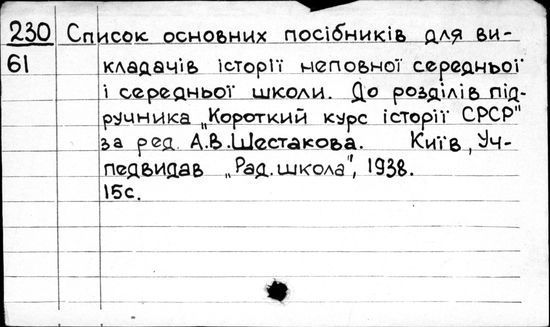 230 Список основних посібників для ви-
61 кладачів історії неповної середньої
і середньої школи. До розділів під-
ручника „Короткий курс історії СРСР"
за ред. А.В.Шестакова. Київ, Уч-
педвидав „Рад.школа", 1938.
15с.